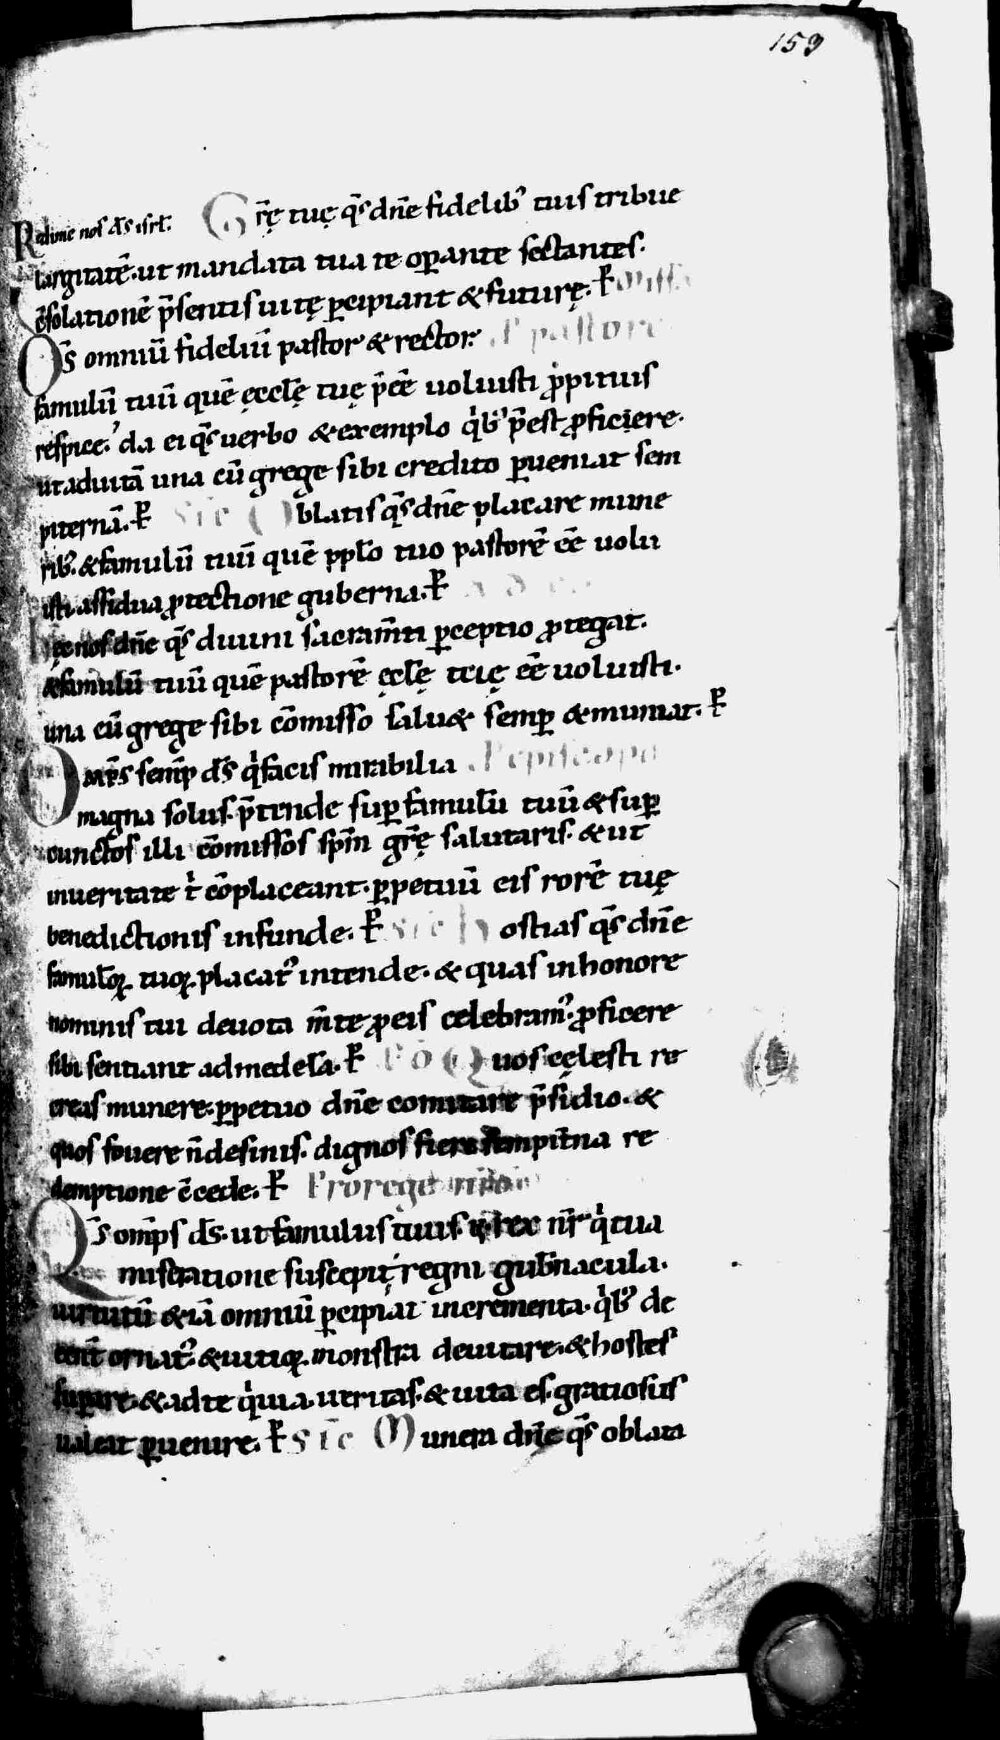 153
Redime nos ds̄ isrl̄. Gr̄ę tuę q̄s dn̄e fidelib' tuis tribue
largitatē. ut mandata tua te oꝑante sectantes.
c̄solationē p̄sentis uitę ꝑcipiant & futurę. P̄ Missa
Ds̄ omniū fideliū pastor & rector. P pastore
famulū tuū quē ęccl̄ę tuę p̄ee uoluisti ꝓpitius
respice. da ei q̄s uerbo & exemplo q̇b' p̄est ꝓficere.
ut ad uitā una cū grege sibi credito ꝑueniat sem
piternā. P̄ Sec Oblatis q̄s dn̄e placare mune
rib'. & famulū tuū quē ppl̄o tuo pastorē ēe uolu
isti assidua ꝓtectione guberna. P̄
Hęc nos dn̄e q̄s diuini sacram̄ti ꝑceptio ꝓtegat.
& famulū tuū quē pastorē ęcl̄ę tuę ēe uoluisti.
una cū grege sibi cōmisso saluet semꝑ & muniat. P̄
Omp̄s semp̄ ds̄ q̇ facis mirabilia P episcopo
magna solus. p̄tende suꝑ famulū tuū & suꝑ
cunctos illi cōmissos spm̄ gr̄ę salutaris. & ut
in ueritate t̄ cōplaceant. ꝑpetuū eis rorē tuę
benedictionis infunde. P̄ Sec Hostias q̄s dn̄e
famuloꝝ tuoꝝ placat' intende. & quas in honore
nominis tui deuota m̄te ꝓ eis celebram'. ꝓficere
sibi sentiant ad medela. P̄ P cō Quos cęlesti re
creas munere. ꝑpetuo dn̄e comitare p̄sidio. &
quos fouere n̄ desinis. dignos fieri sempit̄na re
demptione c̄cede. P̄ Pro rege
Q̄s omp̄s ds̄. ut famulus tuus. rex nr̄ q̇ tua
miseratione suscepit regni gub̄nacula.
uirtutū & iā omniū ꝑcipiat incrementa. q̇b' de
cent̄ ornat'. & uitioꝝ monstra deuitare. & hostes
supare. & ad te q̇ uia. ueritas. & uita es. gratiosus
ualeat ꝑuenire. P̄ Sec Munera dn̄e q̄s oblata